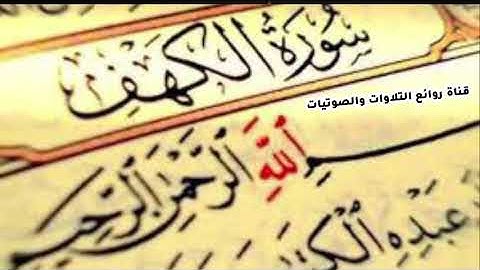 سُورَةُ الكَهْفِ
قناة روائع التلاوات والصوتيات
ـسْمِ اللَّهِ الرَّحْمَٰنِ الرَّحِيمِ
عَبْدِهِ الْكِتَـ